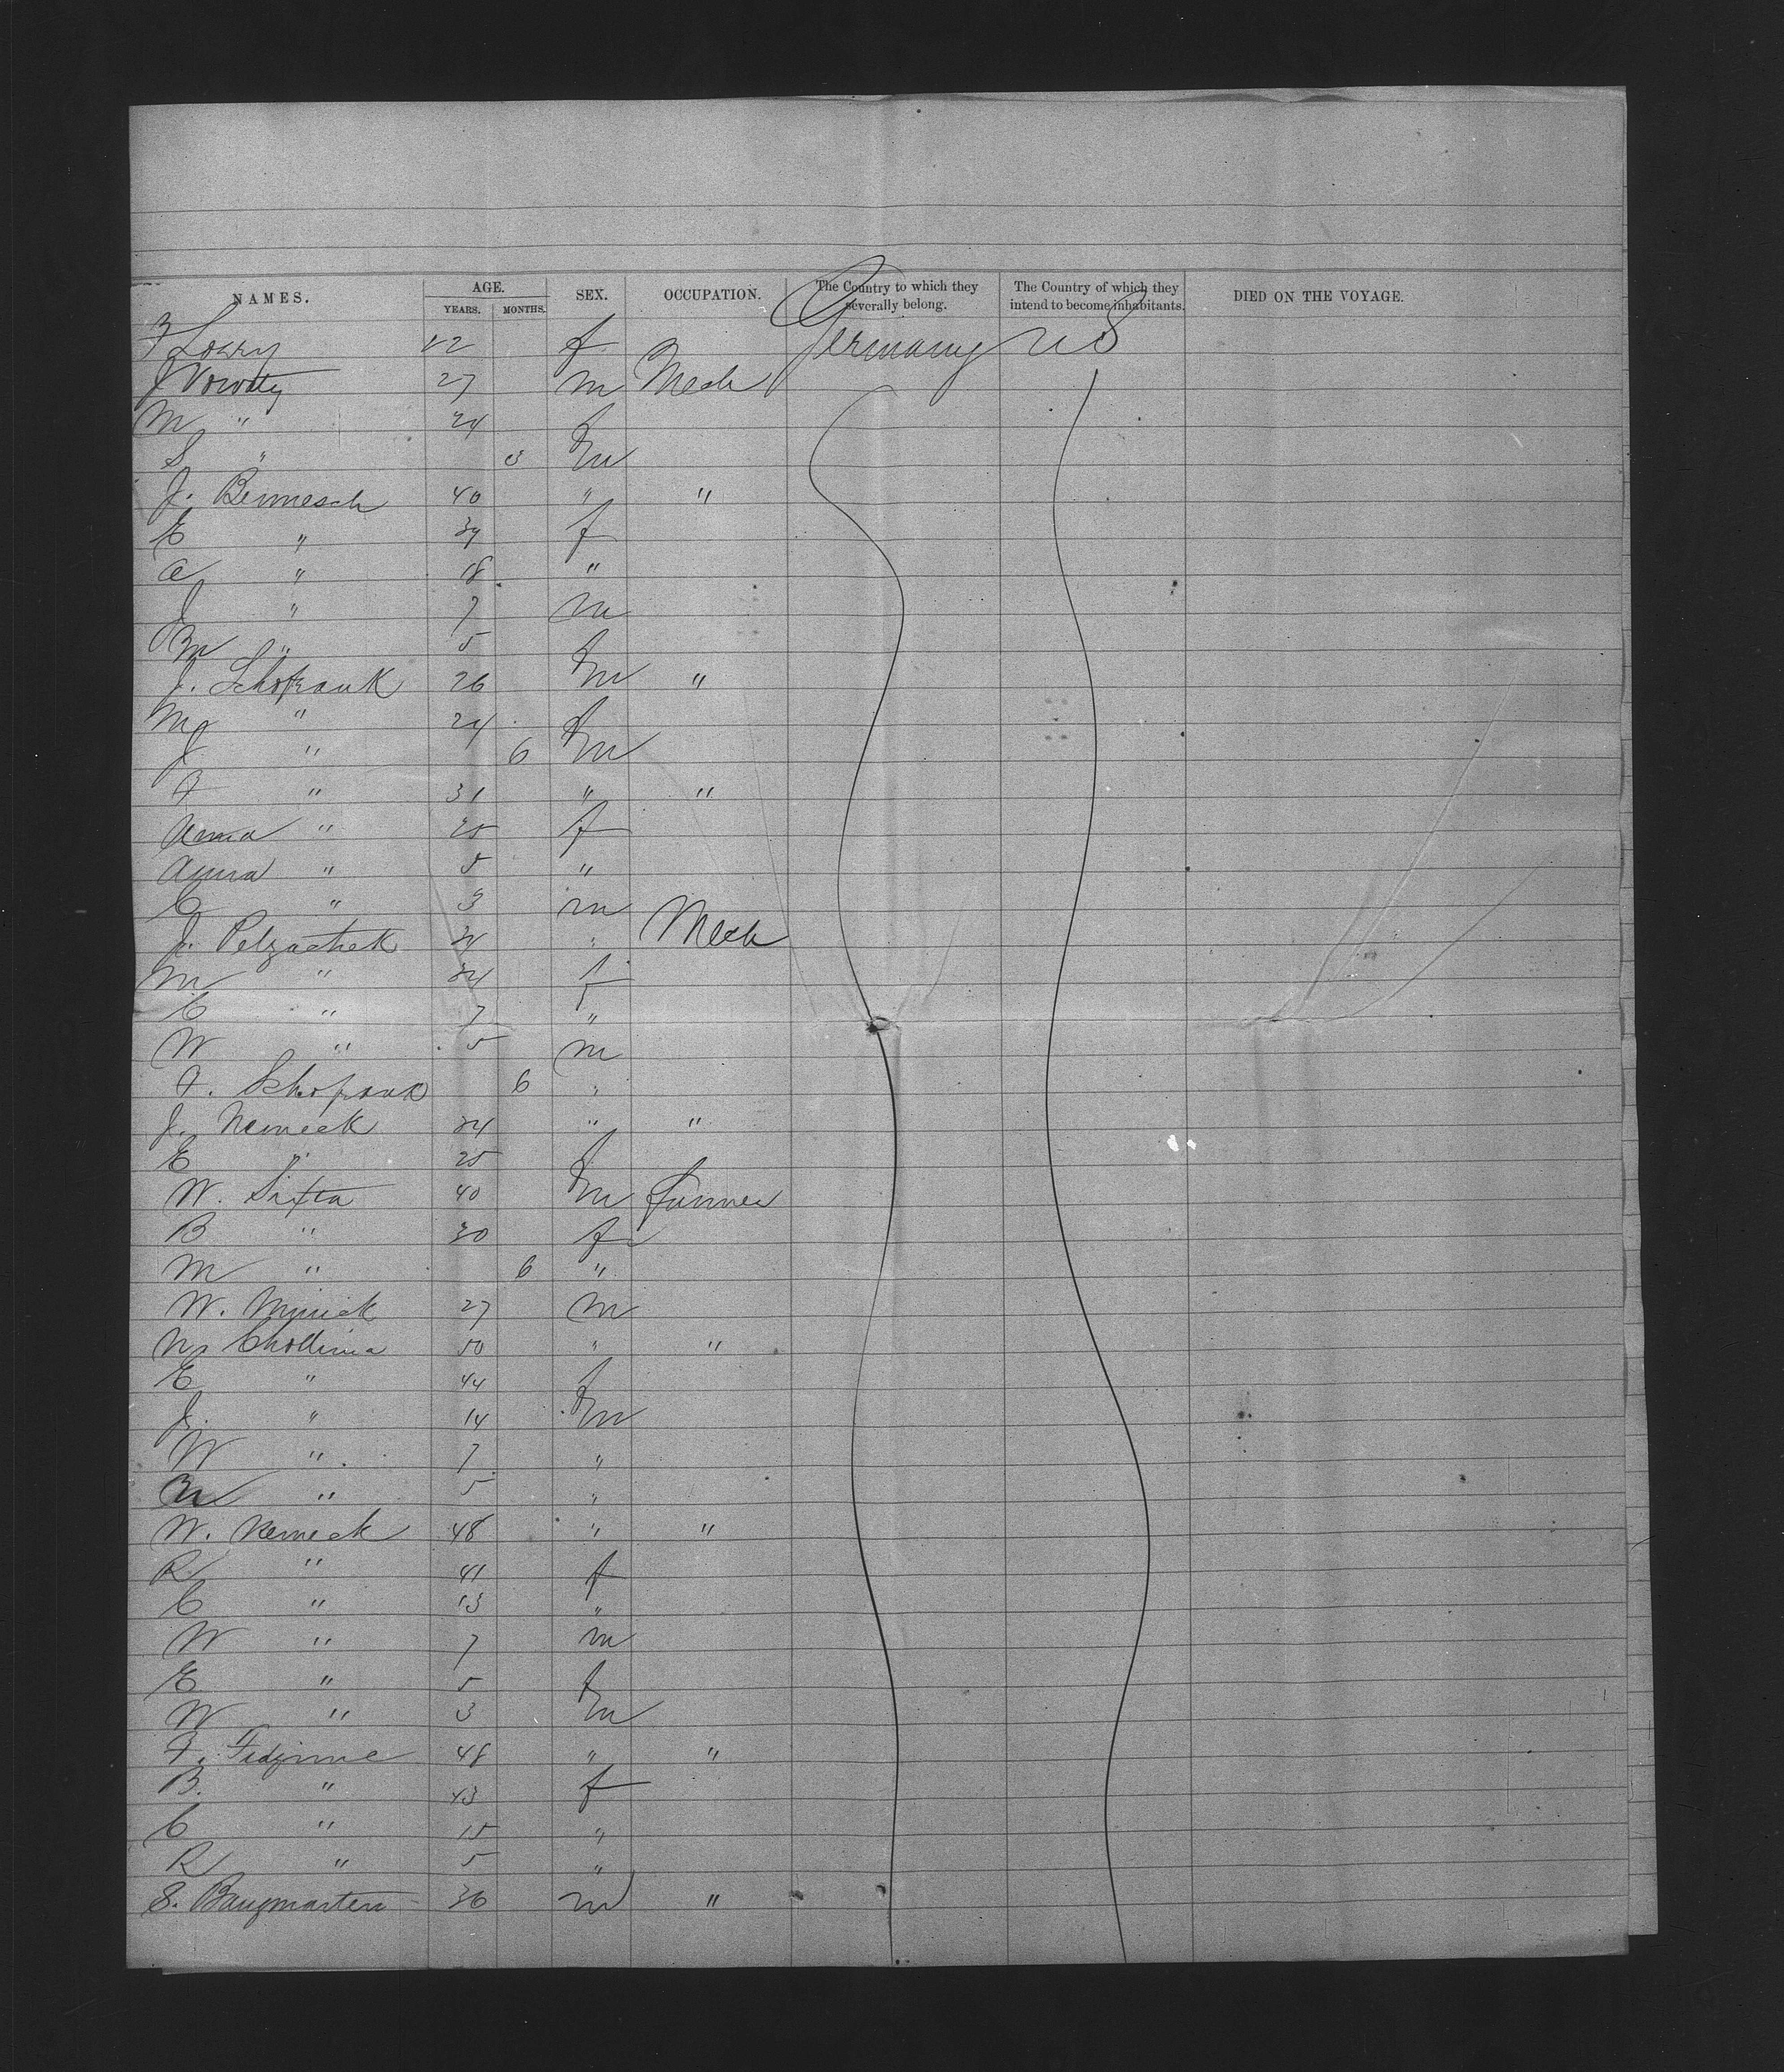 NAMES. AGE. YEARS. MONTHS. SEX. OCCUPATION. The Country to which they severally belong. The Country of which they intend to become inhabitants. DIED ON THE VOYAGE.
F Lowry 22 f Germany US
J 27 m Mech
M " 24 f
S " 3 m
J. Bennesch 40 " "
E " 39 f
A " 18 "
J " 7 m
M " 5 f
J. Schopauk 26 m "
M " 24 f
J " 6 m
F " 31 " "
Anna " 25 f
Anna " 5 "
C " 3 m
J. Pelzachek 34 " Mech
M " 34 f
C " 7 "
W " 5 m
F. Schopauk 6 "
J. Nemeck 34 " "
E " 25 f
W. Sixta 40 m Farmer
B " 30 f
M " 6 "
W. 27 m
N. Chollima 50 " "
E " 44 f
J. " 14 m
W " 7 "
" 5 "
W. Nemeck 48 " "
R " 41 f
C " 13 "
W " 7 m
E " 5 f
W " 3 m
F. 48 " "
B. " 43 f
C " 15 "
R " 5 "
S. Baugmarten 36 m "